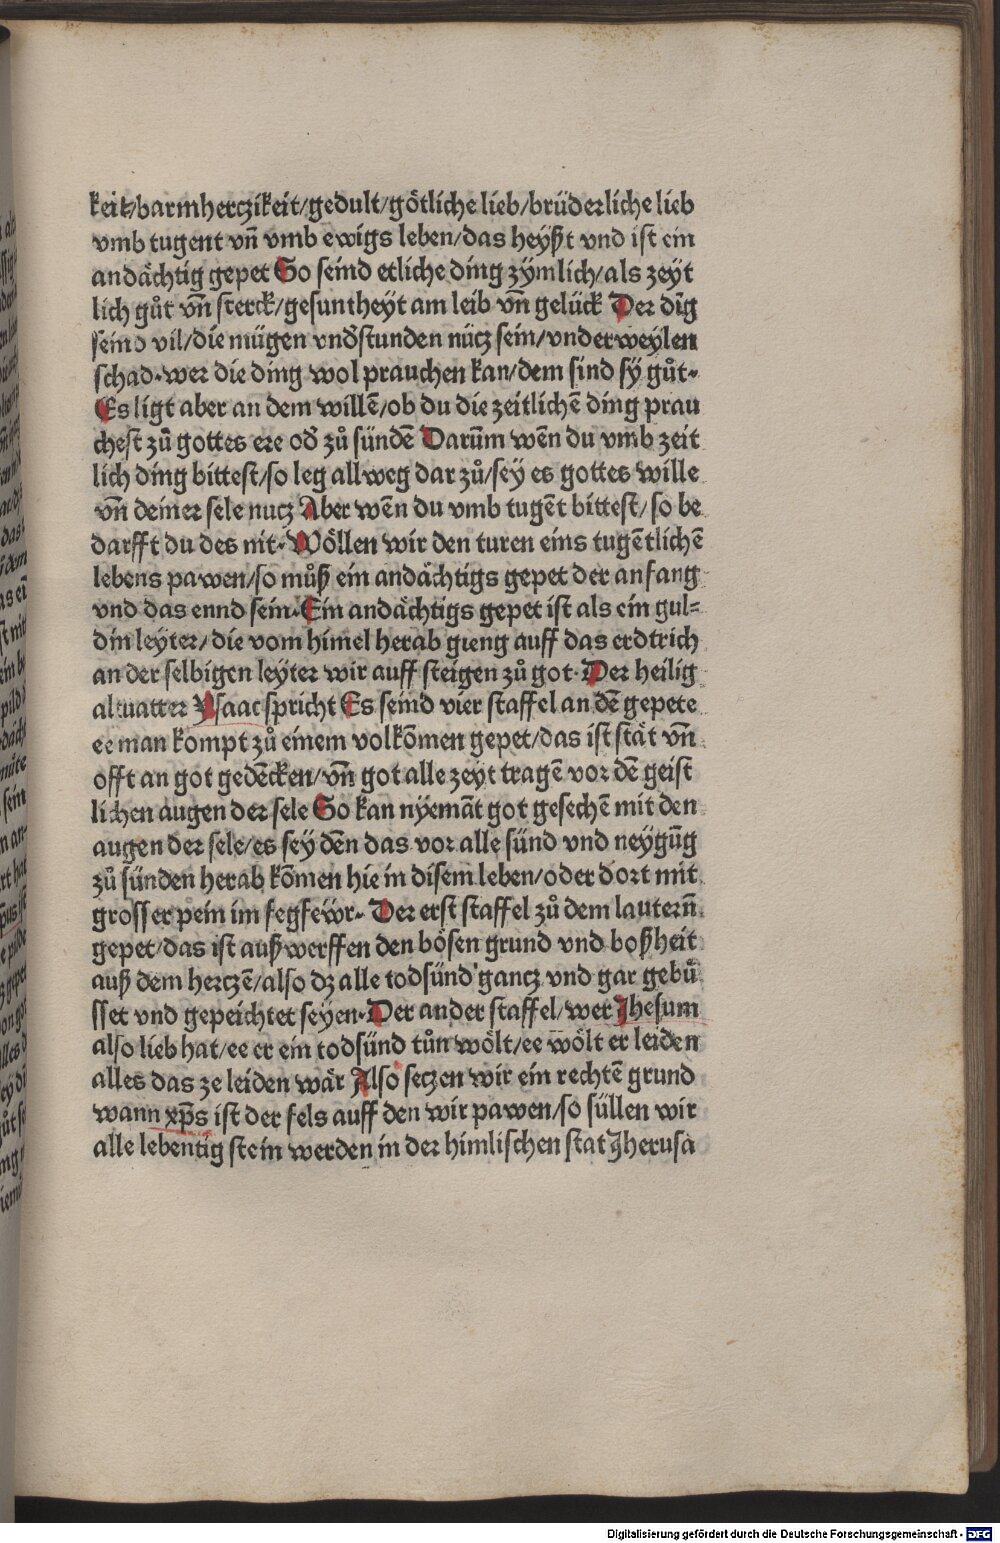 keit/barmherczikeit/gedult/götliche lieb/brüderliche lieb
vmb tugent vn̄ vmb ewigs leben/das heyßt vnd ist ein
andächtig gepet So seind etliche ding zymlich/als zeyt
lich gůt vn̄ sterck/gesuntheyt am leib vn̄ gelück Der dīg
seind vil/die mügen vnd̛stunden nücz sein/vnderweylen
schad·wer die ding wol prauchen kan/dem sind sy gůt·
Es ligt aber an dem willē/ob du die zeitlichē ding prau
chest zů gottes ere od̛ zů sündē Darūm wēn du vmb zeit
lich ding bittest/so leg allweg dar zů/sey es gottes wille
vn̄ deiner sele nucz Aber wēn du vmb tugēt bittest/so be
darfft du des nit·Wöllen wir den turen eins tugētlichē
lebens pawen/so můß ein andächtigs gepet der anfang
vnd das ennd sein·Ein andächtigs gepet ist als ein gul⸗
din leyter/die vom himel herab gieng auff das erdtrich
an der selbigen leyter wir auff steigen zů got·Der heilig
altuatter Ysaac spricht Es seind vier staffel an dē gepete
ee man kompt zů einem volkōmen gepet/das ist stät vn̄
offt an got gedēcken/vn̄ got alle zeyt tragē vor dē geist
lichen augen der sele So kan nyemāt got gesechē mit den
augen der sele/es sey dēn das vor alle sünd vnd neygūg
zů sünden herab kōmen hie in disem leben/oder dort mit
grosser pein im fegfewr·Der erst staffel zů dem lautern̄
gepet/das ist auß werffen den bösen grund vnd boßheit
auß dem herczē/also dz alle todsünd gancz vnd gar gebů
sset vnd gepeichtet seyen·Der ander staffel/wer Jhesum
also lieb hat/ee er ein todsünd tůn wölt/ee wölt er leiden
alles das ze leiden wär Also seczen wir ein rechtē grund
wann xp̄s ist der fels auff den wir pawen/so süllen wir
alle lebentig stein werden in der himlischen stat Jherusa
Digitalisierung gefördert durch die Deutsche Forschungsgemeinschaft - DFG